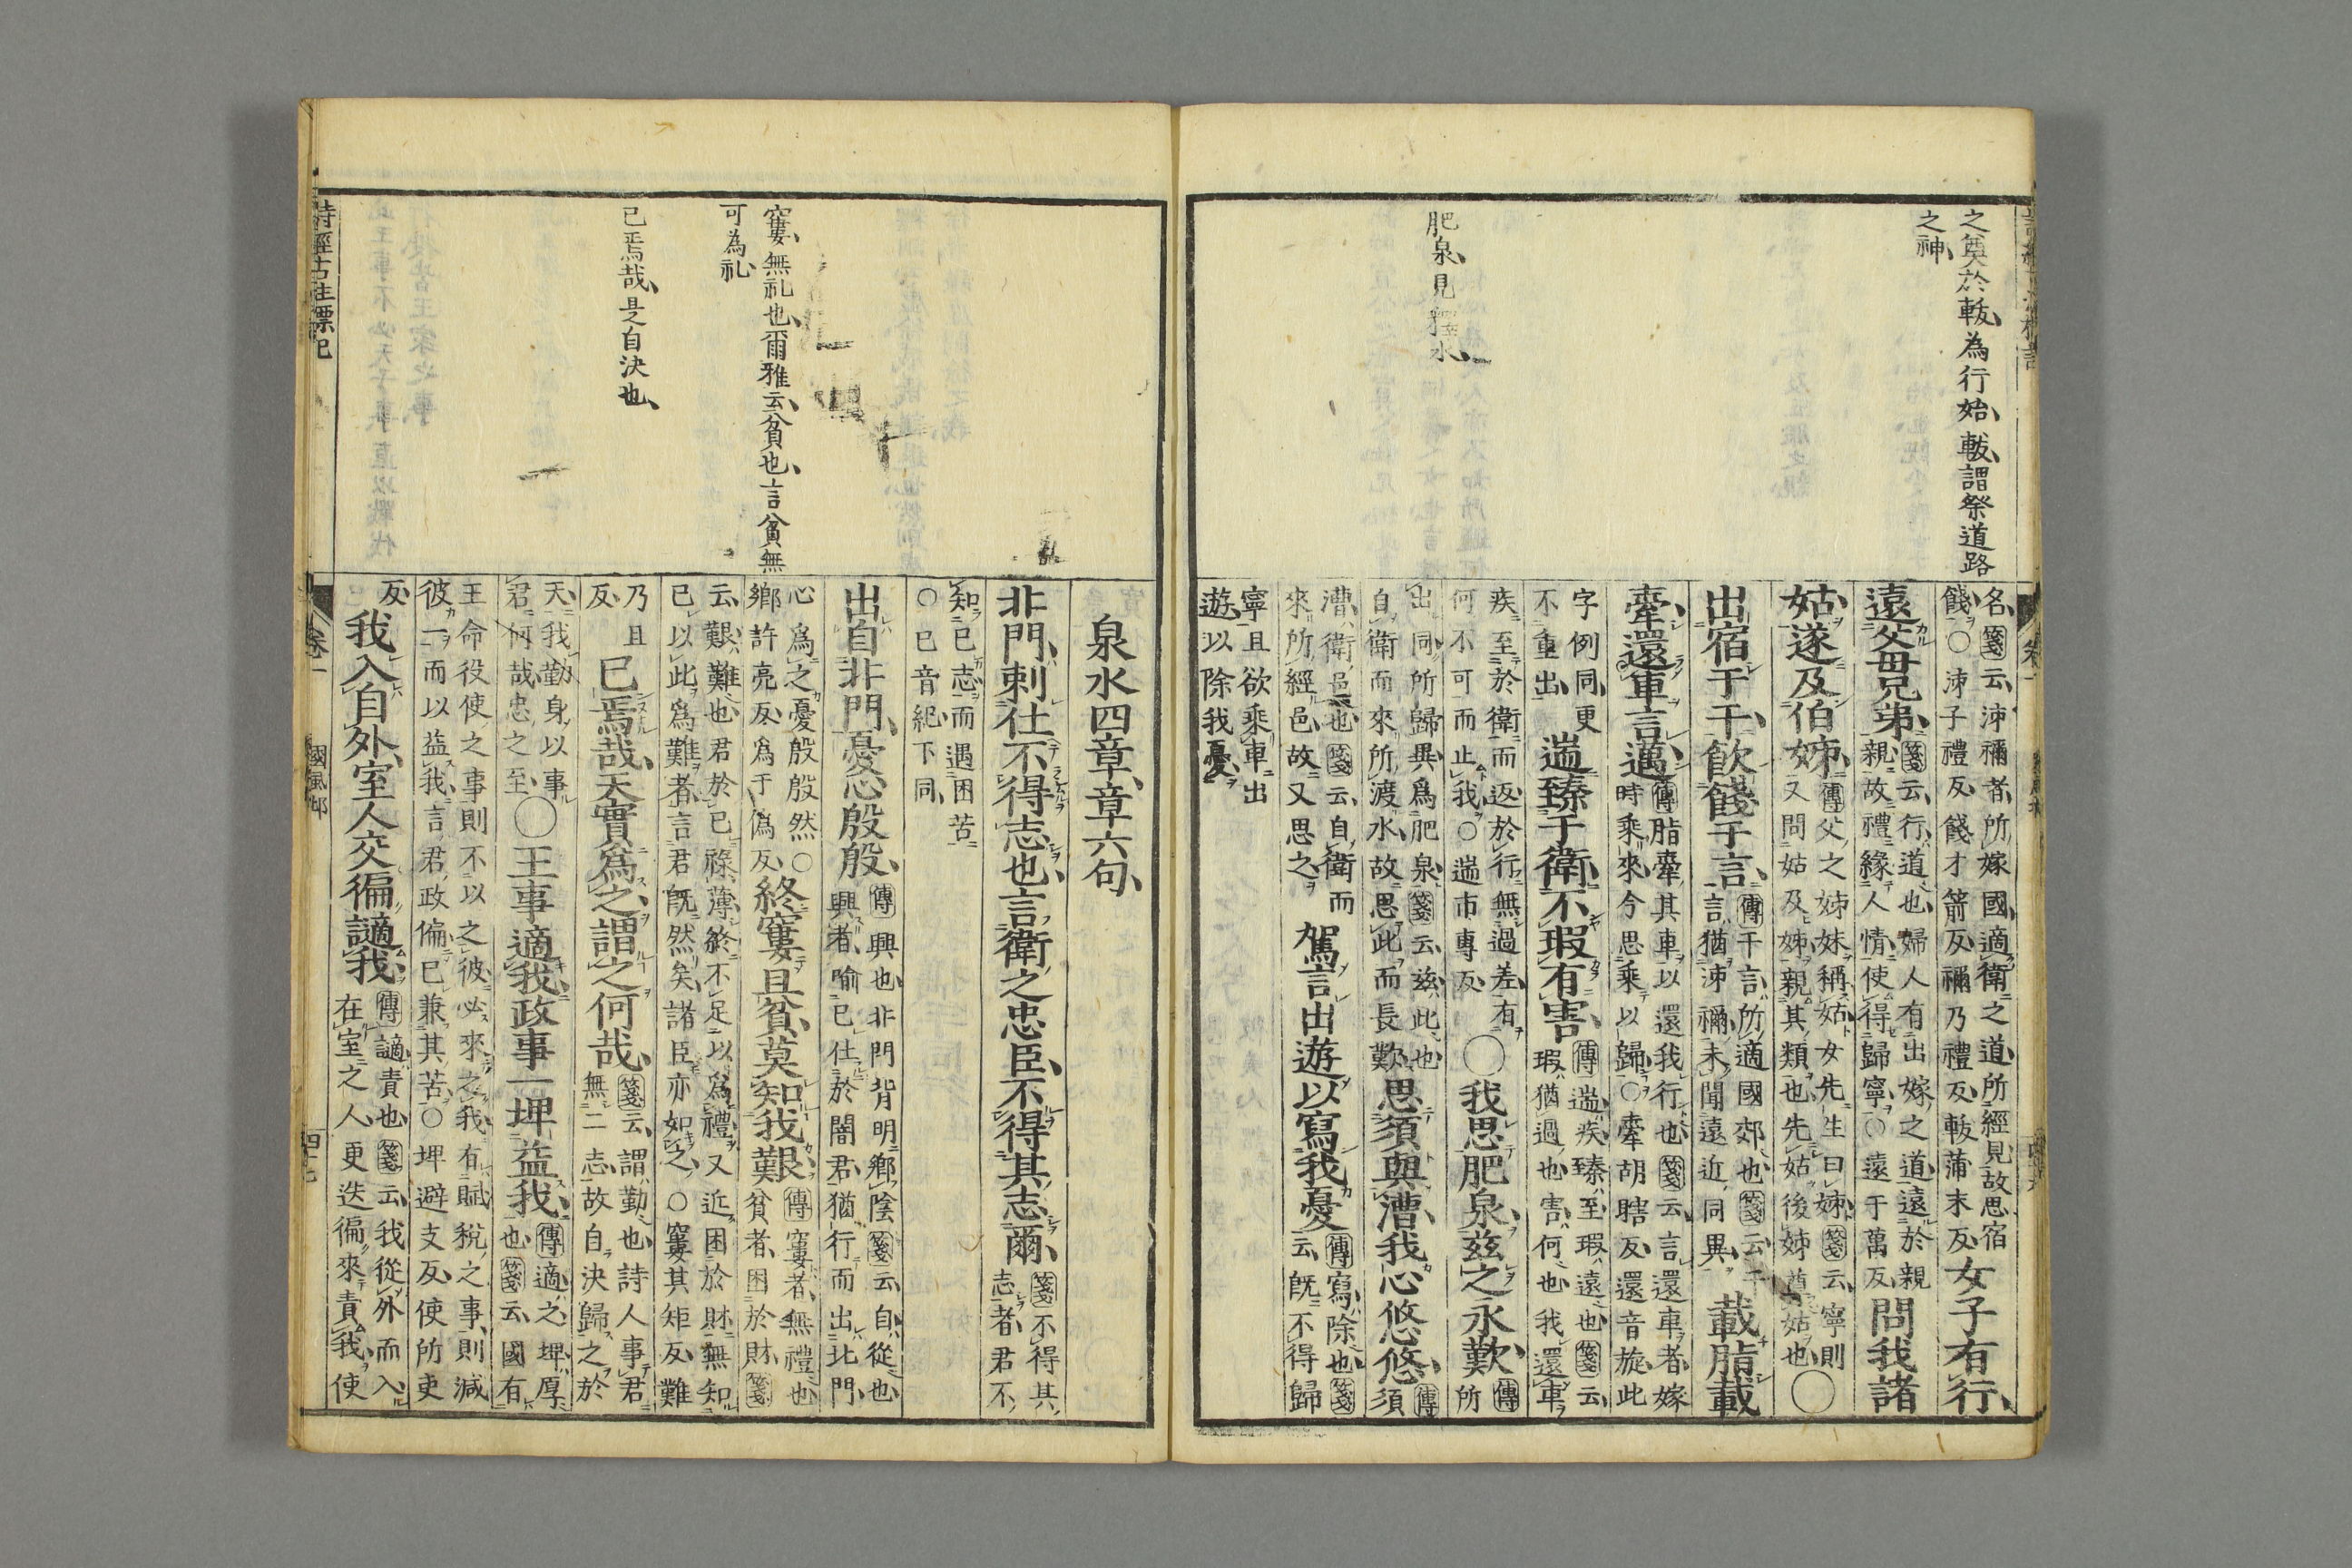 之奠於軷、為行始、軷、謂祭道路
之神、
肥泉、見釋水、
名、箋云、泲禰者、所嫁國、適衛之道、所經見、故思宿
餞、○泲子禮反、餞才箭反、禰乃禮反、軷蒲末反、女子有行、
遠父母兄弟、箋云、行、道也、婦人有出嫁之道、遠於親
親、故禮、緣人情、使得歸寧、○遠于萬反、問我諸
姑、遂及伯姊、傳父之姊妹稱姑、女先生曰姊、箋云、寧則
又問姑及姊、親其類也、先姑後姊、尊姑也、○
出宿于干、飲餞于言、傳干言、所適國郊也、箋云、干
言、猶泲禰、未聞遠近同異、載脂載
舝、還車言邁、傳脂舝其車、以還我行也、箋云、言還車者、嫁
時乘來、今思乘以歸、○舝胡瞎反、還音旋、此
字例同、更
不重出、遄臻于衛、不瑕有害、傳遄、疾、臻、至、瑕、遠也、箋云、
瑕、猶過也、害、何也、我還車、
疾至於衛而返、於行無過差、有
何不可而止我、○遄市專反、○我思肥泉、茲之永歎、傳
所
出同、所歸異、爲肥泉、箋云、茲、此也、
自衛而來所渡水、故思此而長歎、思須與漕、我心悠悠、傳
須
漕、衛邑也、箋云、自衛而
來所經邑、故又思之、駕言出遊、以寫我憂、傳寫、除也、箋
云、既不得歸
寧、且欲乘車出
遊、以除我憂、
窶、無礼也、爾雅云、貧也、言貧無
可為礼、
已焉哉、是自決也、
泉水四章、章六句、
非門、刺仕不得志也、言衛之忠臣、不得其志爾、箋不得其
志者、君不
知己志、而遇困苦、
○己音紀、下同、
出自非門、憂心殷殷、傳興也、非門背明鄉陰、箋云、自、從也、
興者、喻己仕於闇君、猶行而出北門、
心爲之憂殷殷然、○
鄉許亮反、爲于僞反、終窶且貧、莫知我艱、傳窶者、無禮也、
貧者、困於財、箋
云、艱、難也、君於己祿薄、終不足以爲禮、又近困於財、無知
己以此爲難者、言君既然矣、諸臣亦如之、○窶其矩反、難
乃旦
反、已焉哉、天實爲之、謂之何哉、箋云、謂勤也、詩人事君
無二志、故自決歸之於
天、我勤身以事
君、何哉、忠之至、○王事適我、政事一埤益我、傳適、之、埤、厚
也、箋云、國有
王命役使之事、則不以之彼、必來之我、有賦稅之事、則減
彼一而以益我、言君政偏己、兼其苦、○埤避支反、使所吏
反、我入自外、室人交徧讁我、傳讁、責也、箋云、我從外而入、
在室之人、更迭徧來責我、使
詩經古注標記
卷一
國風邶
四十七